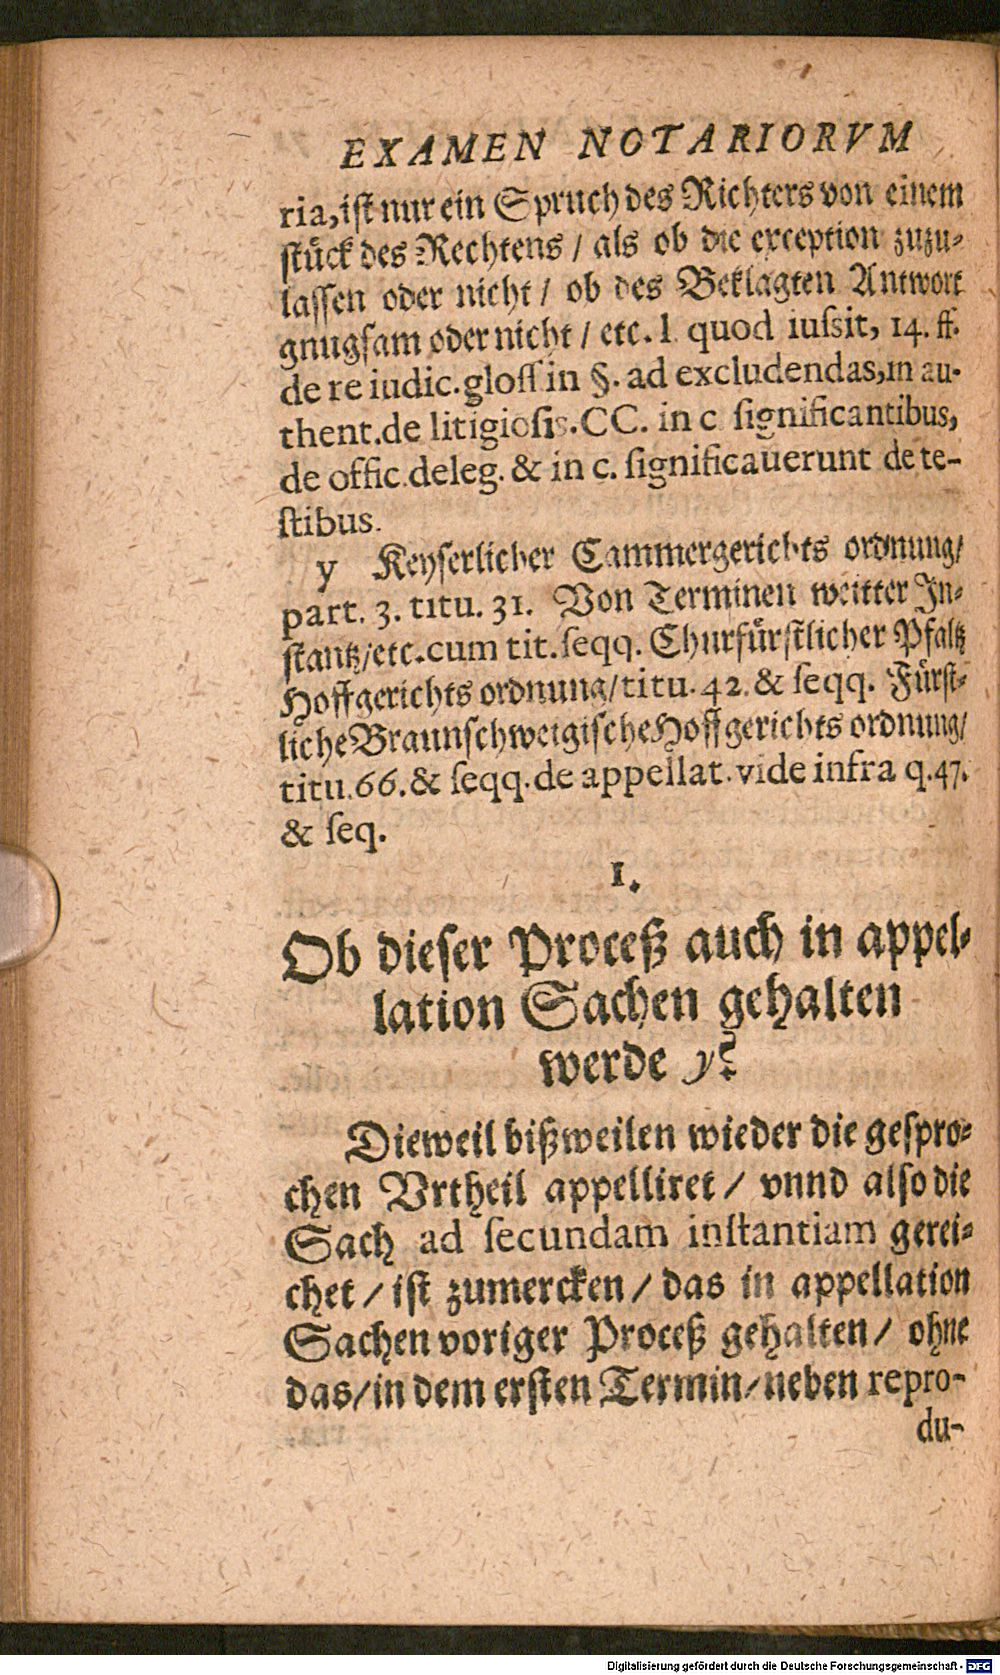 EXAMEN NOTARIORVM
ria, ist nur ein Spruch des Richters von einem
stuͤck des Rechtens / als ob die exception zuzu-
lassen oder nicht / ob des Beklagten Antwort
gnugsam oder nicht / etc. l. quod iuſsit, 14. ff.
de re iudic. gloſſ in §. ad excludendas, in au-
thent. de litigioſis. CC. in c ſignificantibus,
de offic. deleg. & in c. ſignificauerunt de te-
ſtibus.
y Keyserlicher Cammergerichts ordnung/
part. 3. titu. 31. Von Terminen weitter In-
stantz/etc. cum tit. ſeqq. Churfuͤrstlicher Pfaltz
Hoffgerichts ordnung/titu. 42. & ſeqq. Fuͤrst-
liche Braunschweigische Hoffgerichts ordnung/
titu. 66. & ſeqq. de appellat. vide infra q. 47.
& ſeq.
1.
Ob dieser Proceß auch in appel-
lation Sachen gehalten
werde y?
Dieweil bißweilen wieder die gespro-
chen Vrtheil appelliret / vnnd also die
Sach ad ſecundam inſtantiam gerei-
chet / ist zumercken / das in appellation
Sachen voriger Proceß gehalten / ohne
das/in dem ersten Termin/neben repro-
du-
Digitalisierung gefördert durch die Deutsche Forschungsgemeinschaft - DFG